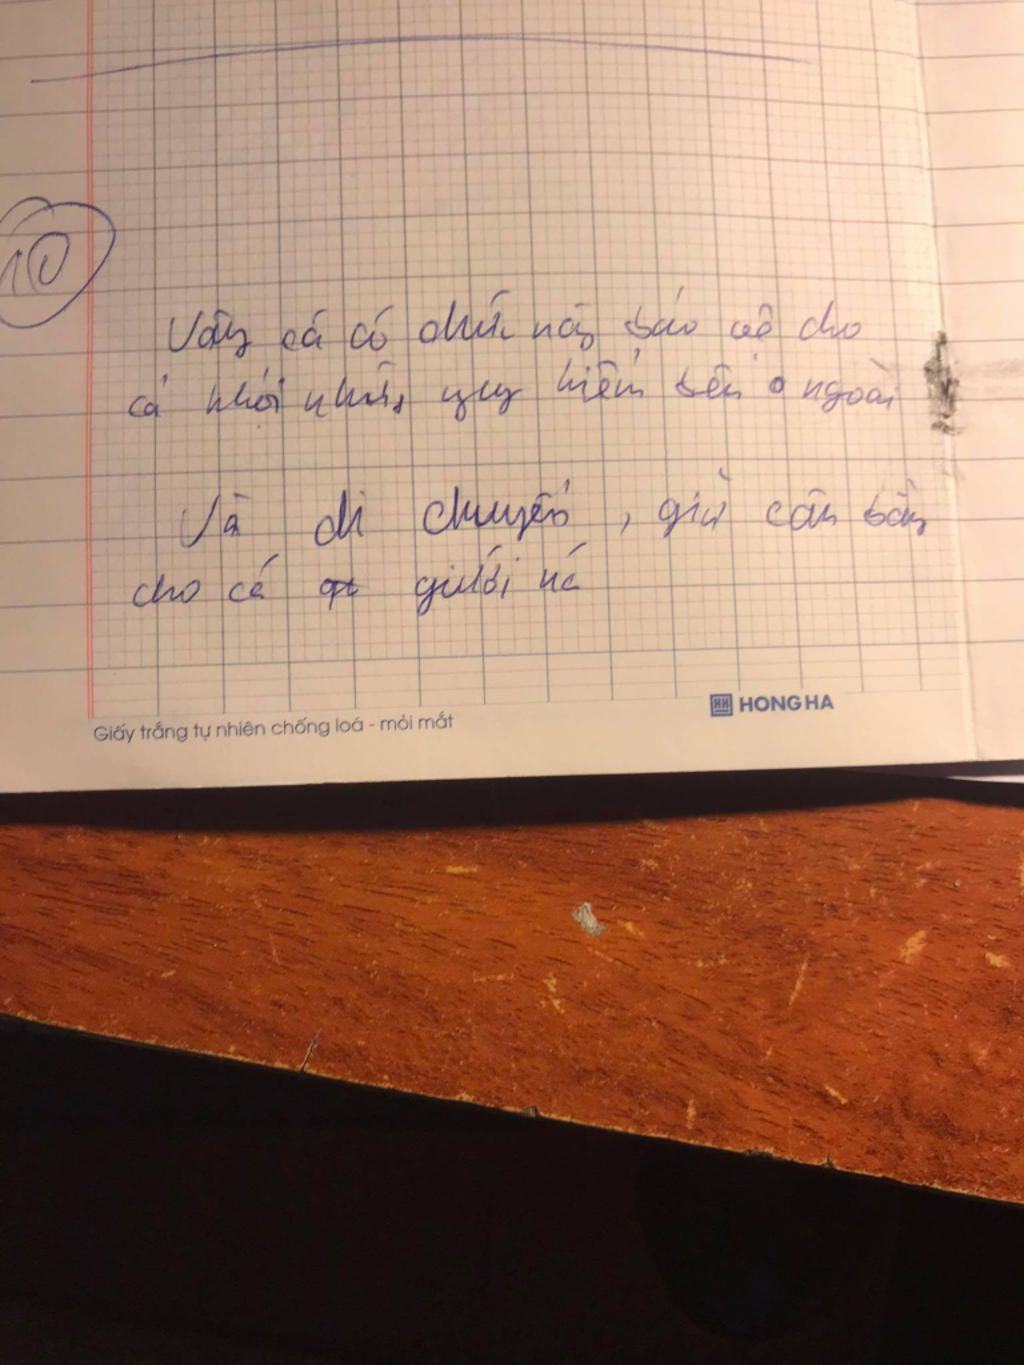 10
Vây cá có chức năng bảo vệ cho
cá khỏi những nguy hiểm bên ngoài
Và di chuyển, giữ cân bằng
cho cá dưới nước
HONG HA
Giấy trắng tự nhiên chống loá - mỏi mắt